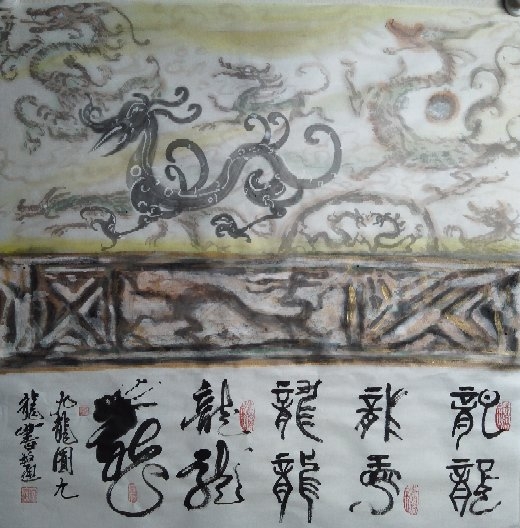 龍龍
龍龍
龍龍
龍龍
龍
九龍圖九
龍書